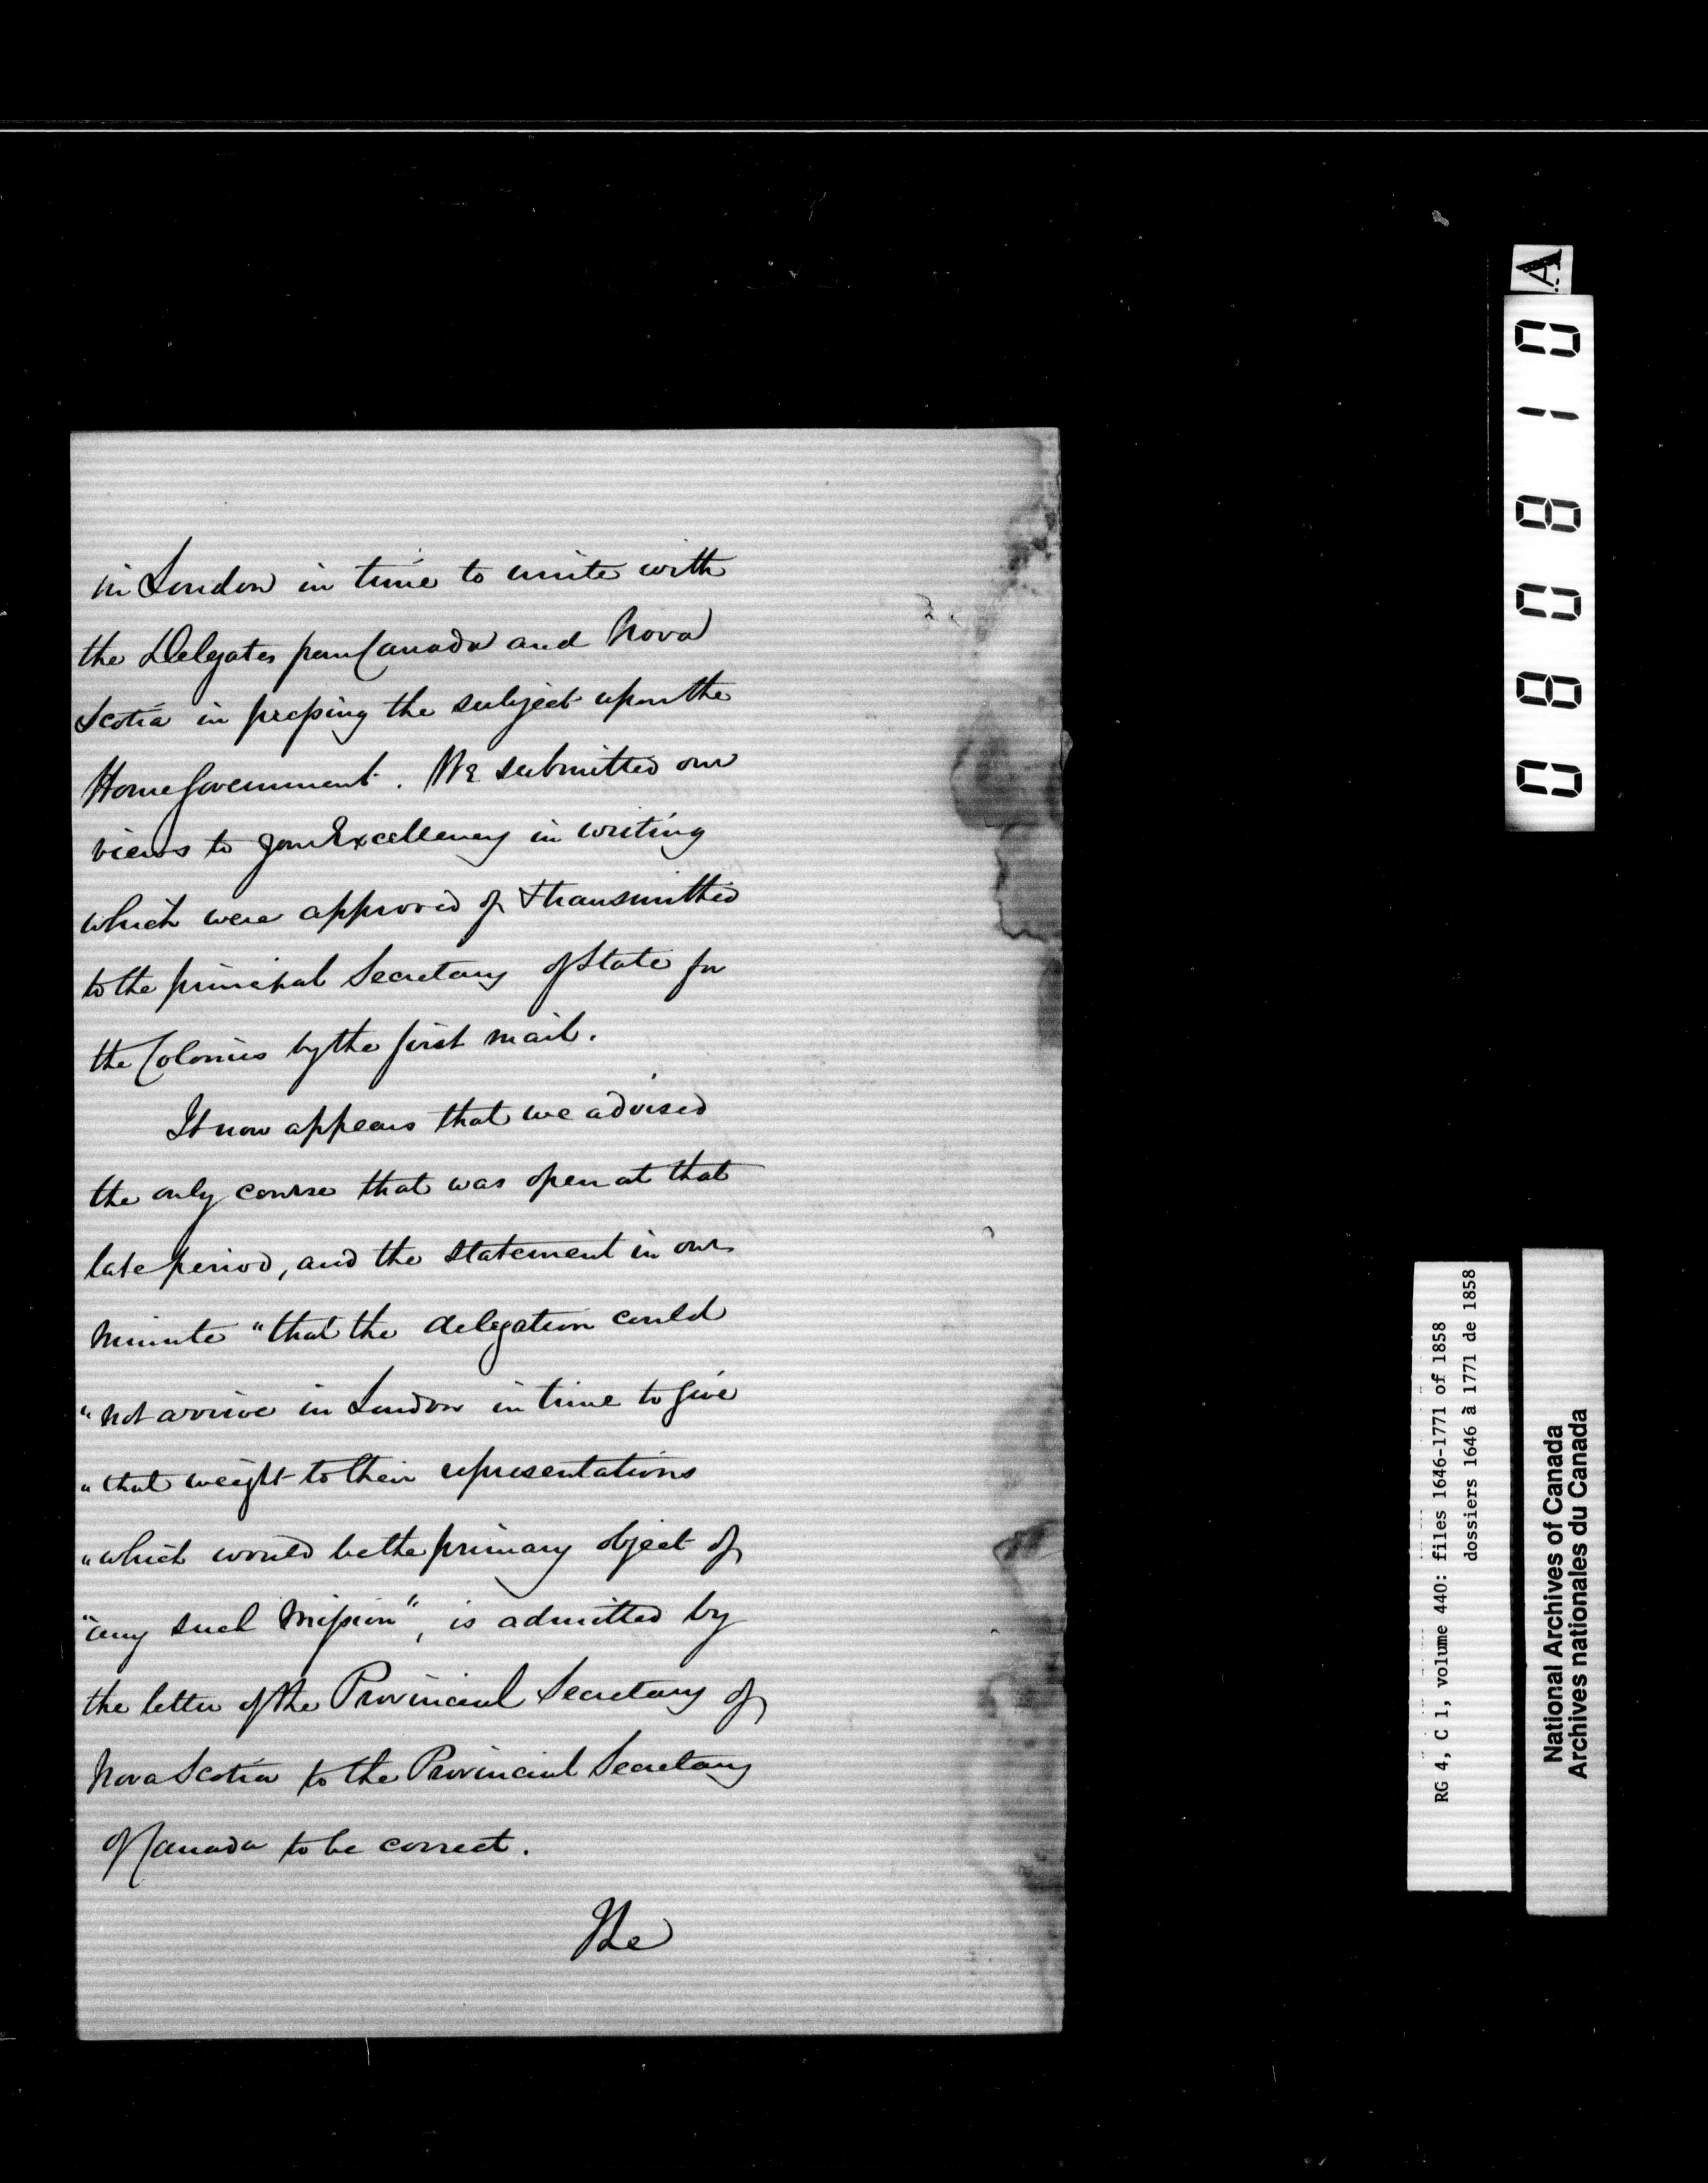 in London in time to unite with
the Delegates from Canada and Nova
Scotia in pressing the subject upon the
Home Government. We submitted our
views to your Excellency in writing
which were approved of & transmitted
to the principal Secretary of State for
the Colonies by the first mail.
It now appears that we advised
the only course that was open at that
late period, and the statement in our
Minute "that the delegation could
"not arrive in London in time to give
"that weight to their representations
"which would be the primary object of
"any such Mission", is admitted by
the letter of the Provincial Secretary of
Nova Scotia to the Provincial Secretary
of Canada to be correct.
The
A
088010
RG 4, C 1, volume 440: files 1646-1771 of 1858
dossiers 1646 à 1771 de 1858
National Archives of Canada
Archives nationales du Canada